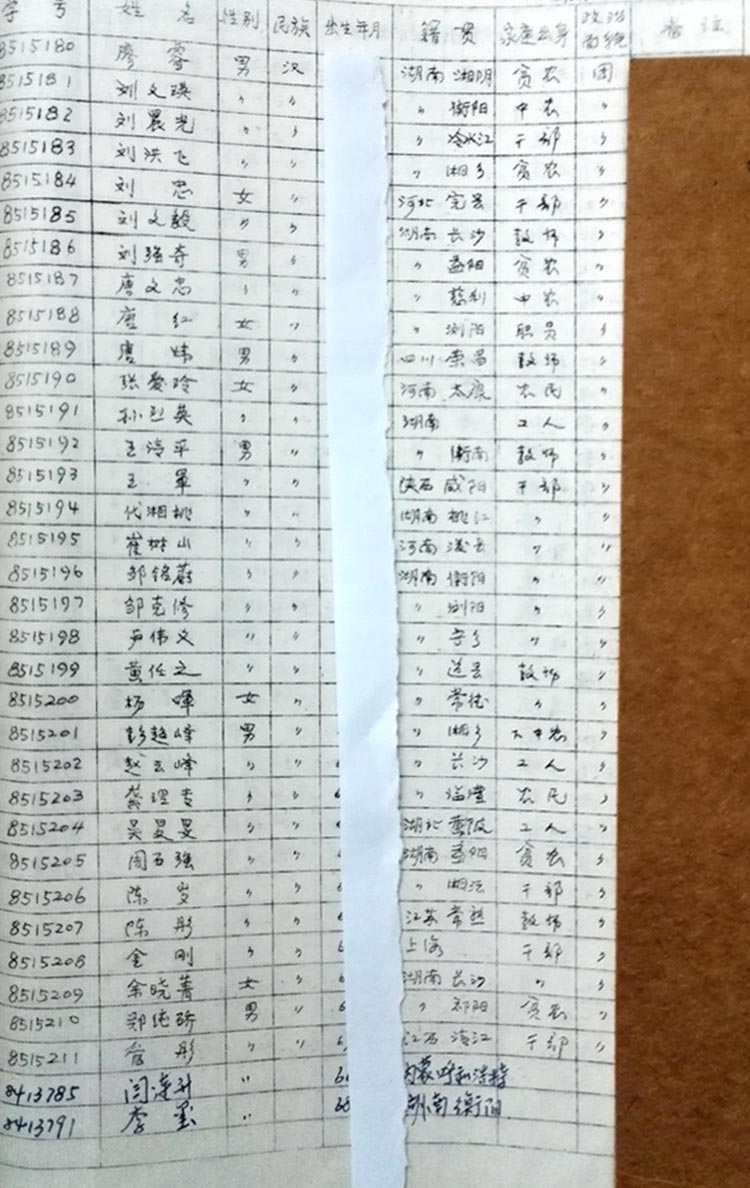 学号 姓名 性别 民族 出生年月 籍贯 家庭出身 政治面貌 备注
8515180 廖蓉 男 汉 湖南 湘阴 贫农 团
8515181 刘文瑛 〃 〃 〃 衡阳 中农 〃
8515182 刘晨光 〃 〃 〃 冷水江 干部 〃
8515183 刘洪飞 〃 〃 〃 湘乡 贫农 〃
8515184 刘忠 女 〃 河北 完县 干部 〃
8515185 刘文毅 〃 〃 湖南 长沙 教师 〃
8515186 刘强奇 男 〃 〃 益阳 贫农 〃
8515187 唐文忠 〃 〃 〃 慈利 中农 〃
8515188 唐红 女 〃 〃 浏阳 职员 〃
8515189 唐炜 男 〃 四川 荣昌 教师 〃
8515190 张爱玲 女 〃 河南 太康 农民 〃
8515191 孙烈英 〃 〃 湖南 工人 〃
8515192 王清平 男 〃 〃 衡南 教师 〃
8515193 王军 〃 〃 陕西 咸阳 干部 〃
8515194 代湘桃 〃 〃 湖南 桃江 〃 〃
8515195 崔树山 〃 〃 河南 〃 〃
8515196 邹铭蔚 〃 〃 湖南 衡阳 〃 〃
8515197 邹克修 〃 〃 〃 浏阳 〃 〃
8515198 尹伟文 〃 〃 〃 宁乡 〃 〃
8515199 黄任之 〃 〃 〃 道县 教师 〃
8515200 杨晖 女 〃 〃 常德 〃 〃
8515201 彭超峰 男 〃 〃 湘乡 下中农 〃
8515202 赵云峰 〃 〃 〃 长沙 工人 〃
8515203 龚理专 〃 〃 农民 〃
8515204 吴旻旻 〃 〃 6 湖北 黄陂 工人 〃
8515205 周石强 〃 〃 湖南 益阳 贫农 〃
8515206 陈岁 〃 〃 6 〃 湘潭 干部 〃
8515207 陈彤 〃 〃 6 江苏 常熟 教师 〃
8515208 金刚 〃 〃 6 上海 干部 〃
8515209 余晓菁 女 〃 6 湖南 长沙 〃 〃
8515210 郑纯骄 男 〃 6 〃 邵阳 贫农 〃
8515211 曾彤 〃 〃 6 江西 清江 干部 〃
8413785 闫连升 〃 6 内蒙呼和浩特
8413791 李墨 〃 68 湖南衡阳